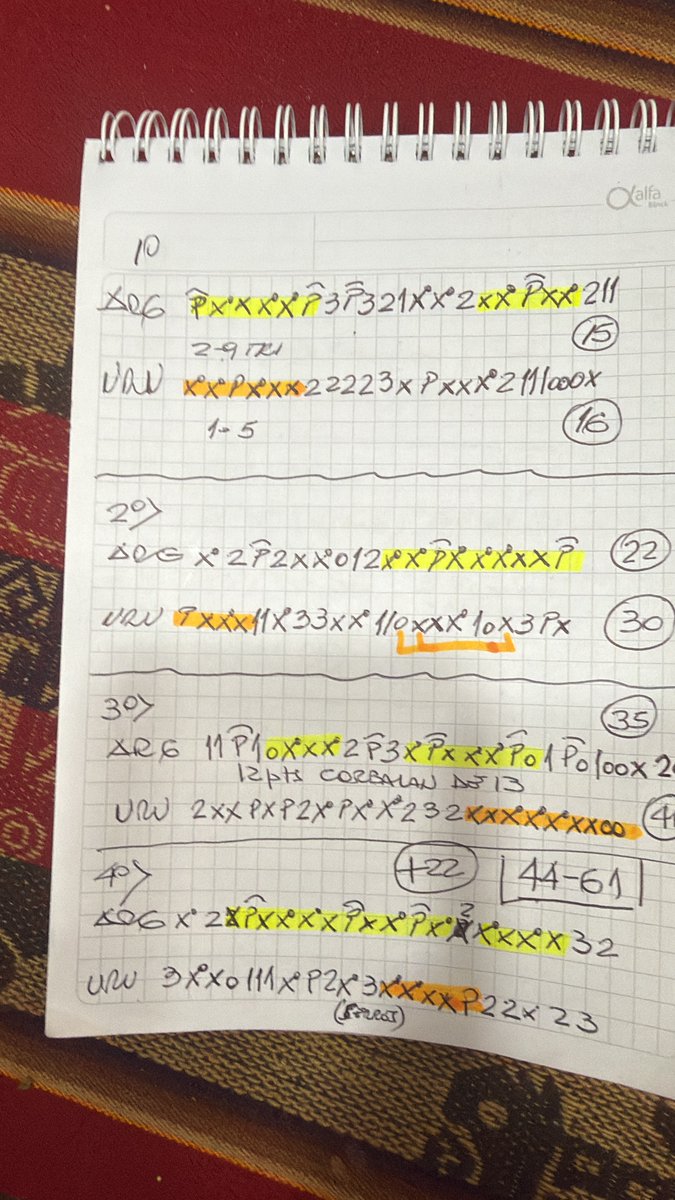 alfa
10
ARG P̂x°x°x°x°P̂3P̂321x°x°2x°x°P̂x°x°211
15
URU x°x°Pxx°x22223xPxxx°2111000x
1-5
16
2º>
ARG x°2P̂2xx°012x°x°P̂x°x°x°xxP̂
22
URU Pxxx11x°33xx°110xxx°10x3Px
30
3º>
35
ARG 11P̂10x°x°x°2P̂3x°P̂xx°x°P̂01P̂0100x2
12 pts CORBALAN DE 13
URU 2xxPxP2x°Px°x°232xx°x°x°x°x°xx00
+22
44-61
4º>
ARG x°2xP̂xxxx°P̂xx°P̂x°2x°x°x°x°32
URU 3x°x0111x°P2x°3x°x°xxP22x23